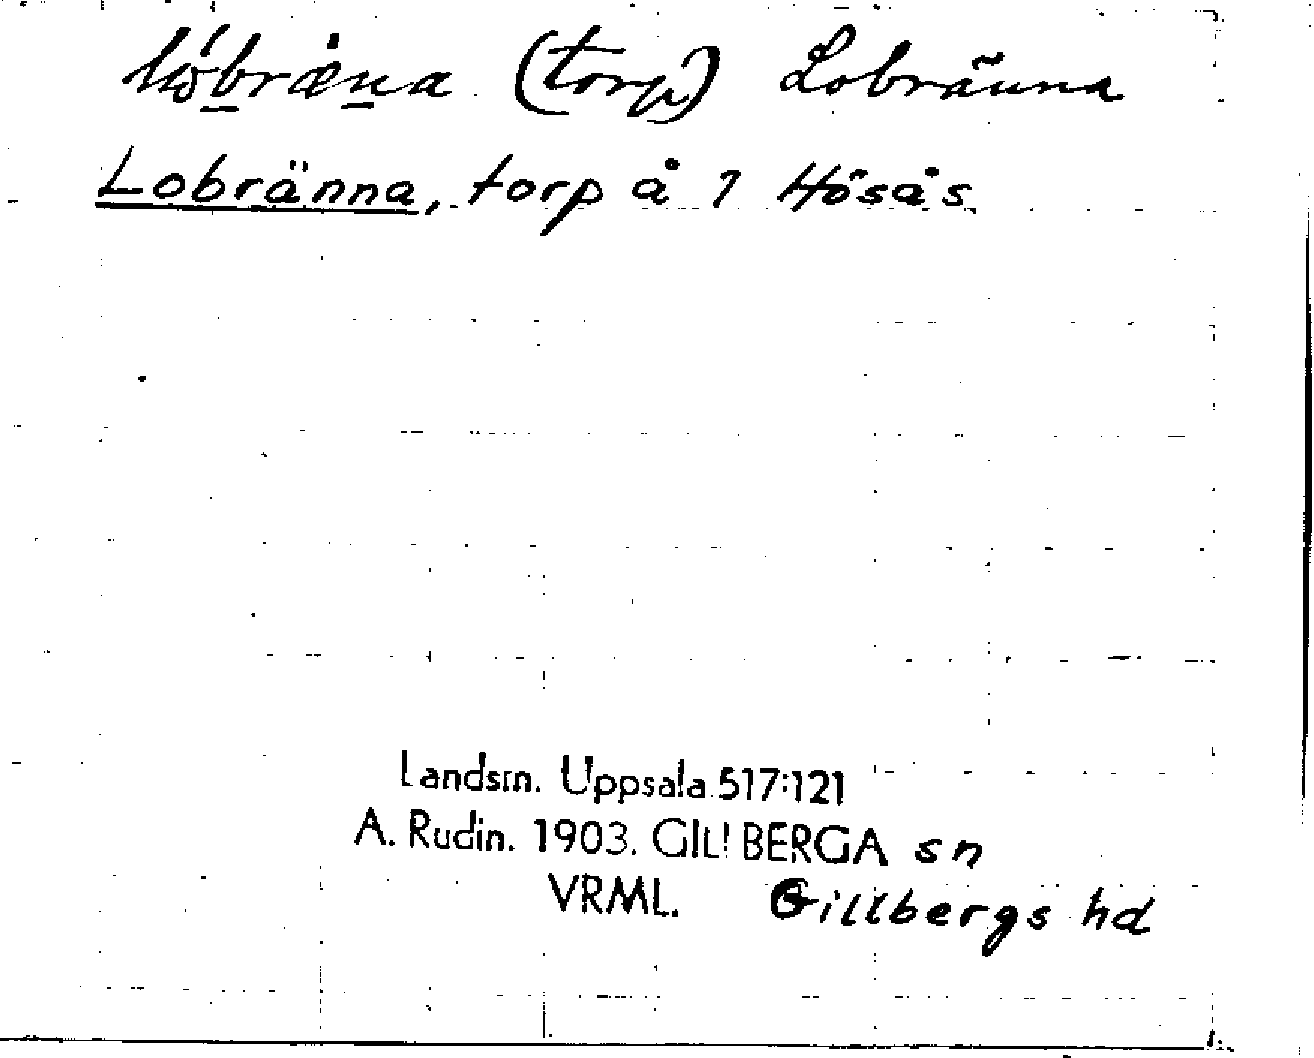 (torp) Lobränna
Lobränna, torp å 1 Hösås
Landsm. Uppsala 517:121
A. Rudin. 1903. GILLBERGA sn
VRML. Gillbergs hd